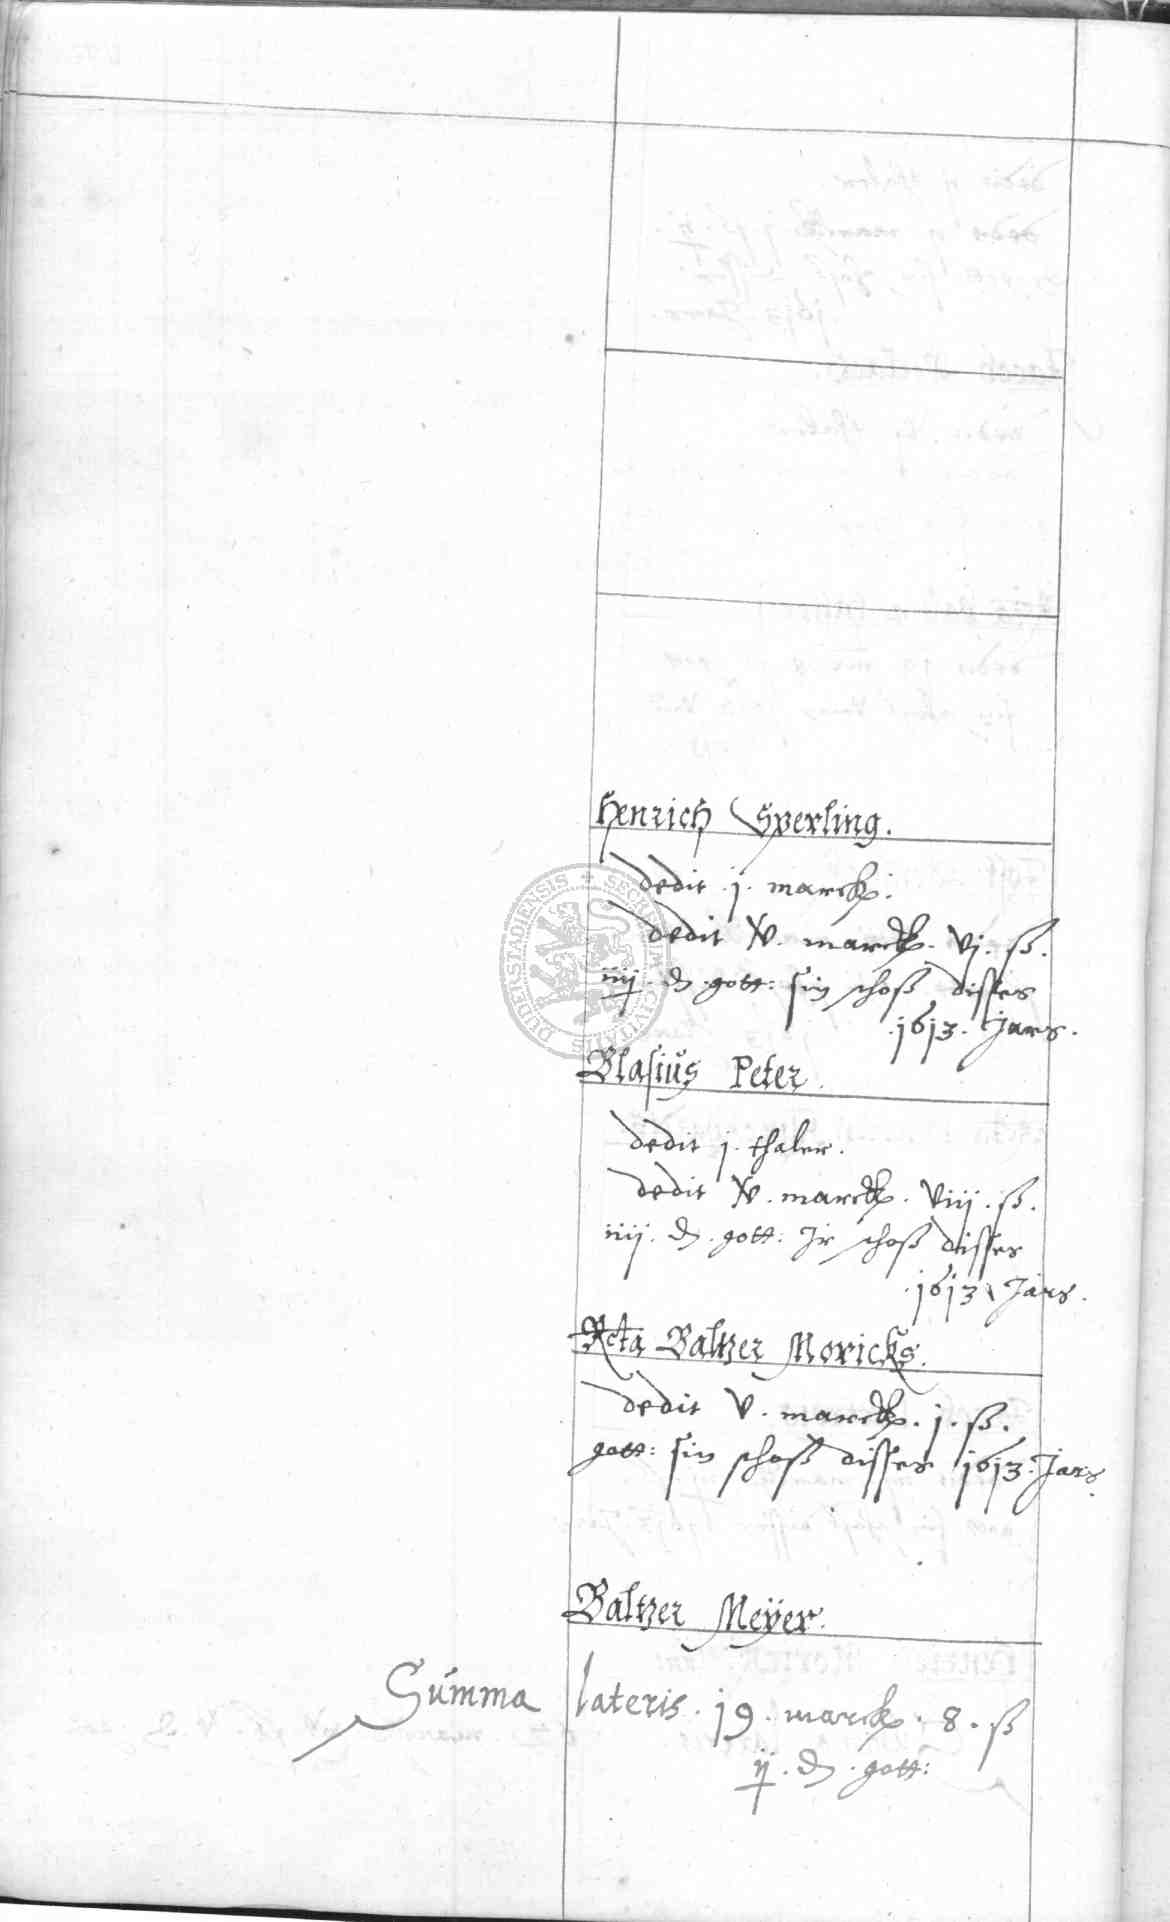 Henrich Sperling.
dedit .j. marck.
dedit xv. marck. vj. ß.
iiij. d. gott: sin schoß disses
.1613. Jars.
Blasius Peter.
dedit j. thaler.
dedit xv. marck. viiij. ß.
iiij. d. gott: Jr schoß disses
.1613. Jars.
Rcta Baltzer Moricks.
dedit v. marck. j. ß.
gott: sin schoß disses 1613. Jars.
Baltzer Meÿer.
Summa lateris. 19. marck. 8. ß
ij. d. gott:
SECRETUM CIVITATIS DUDERSTADIENSIS